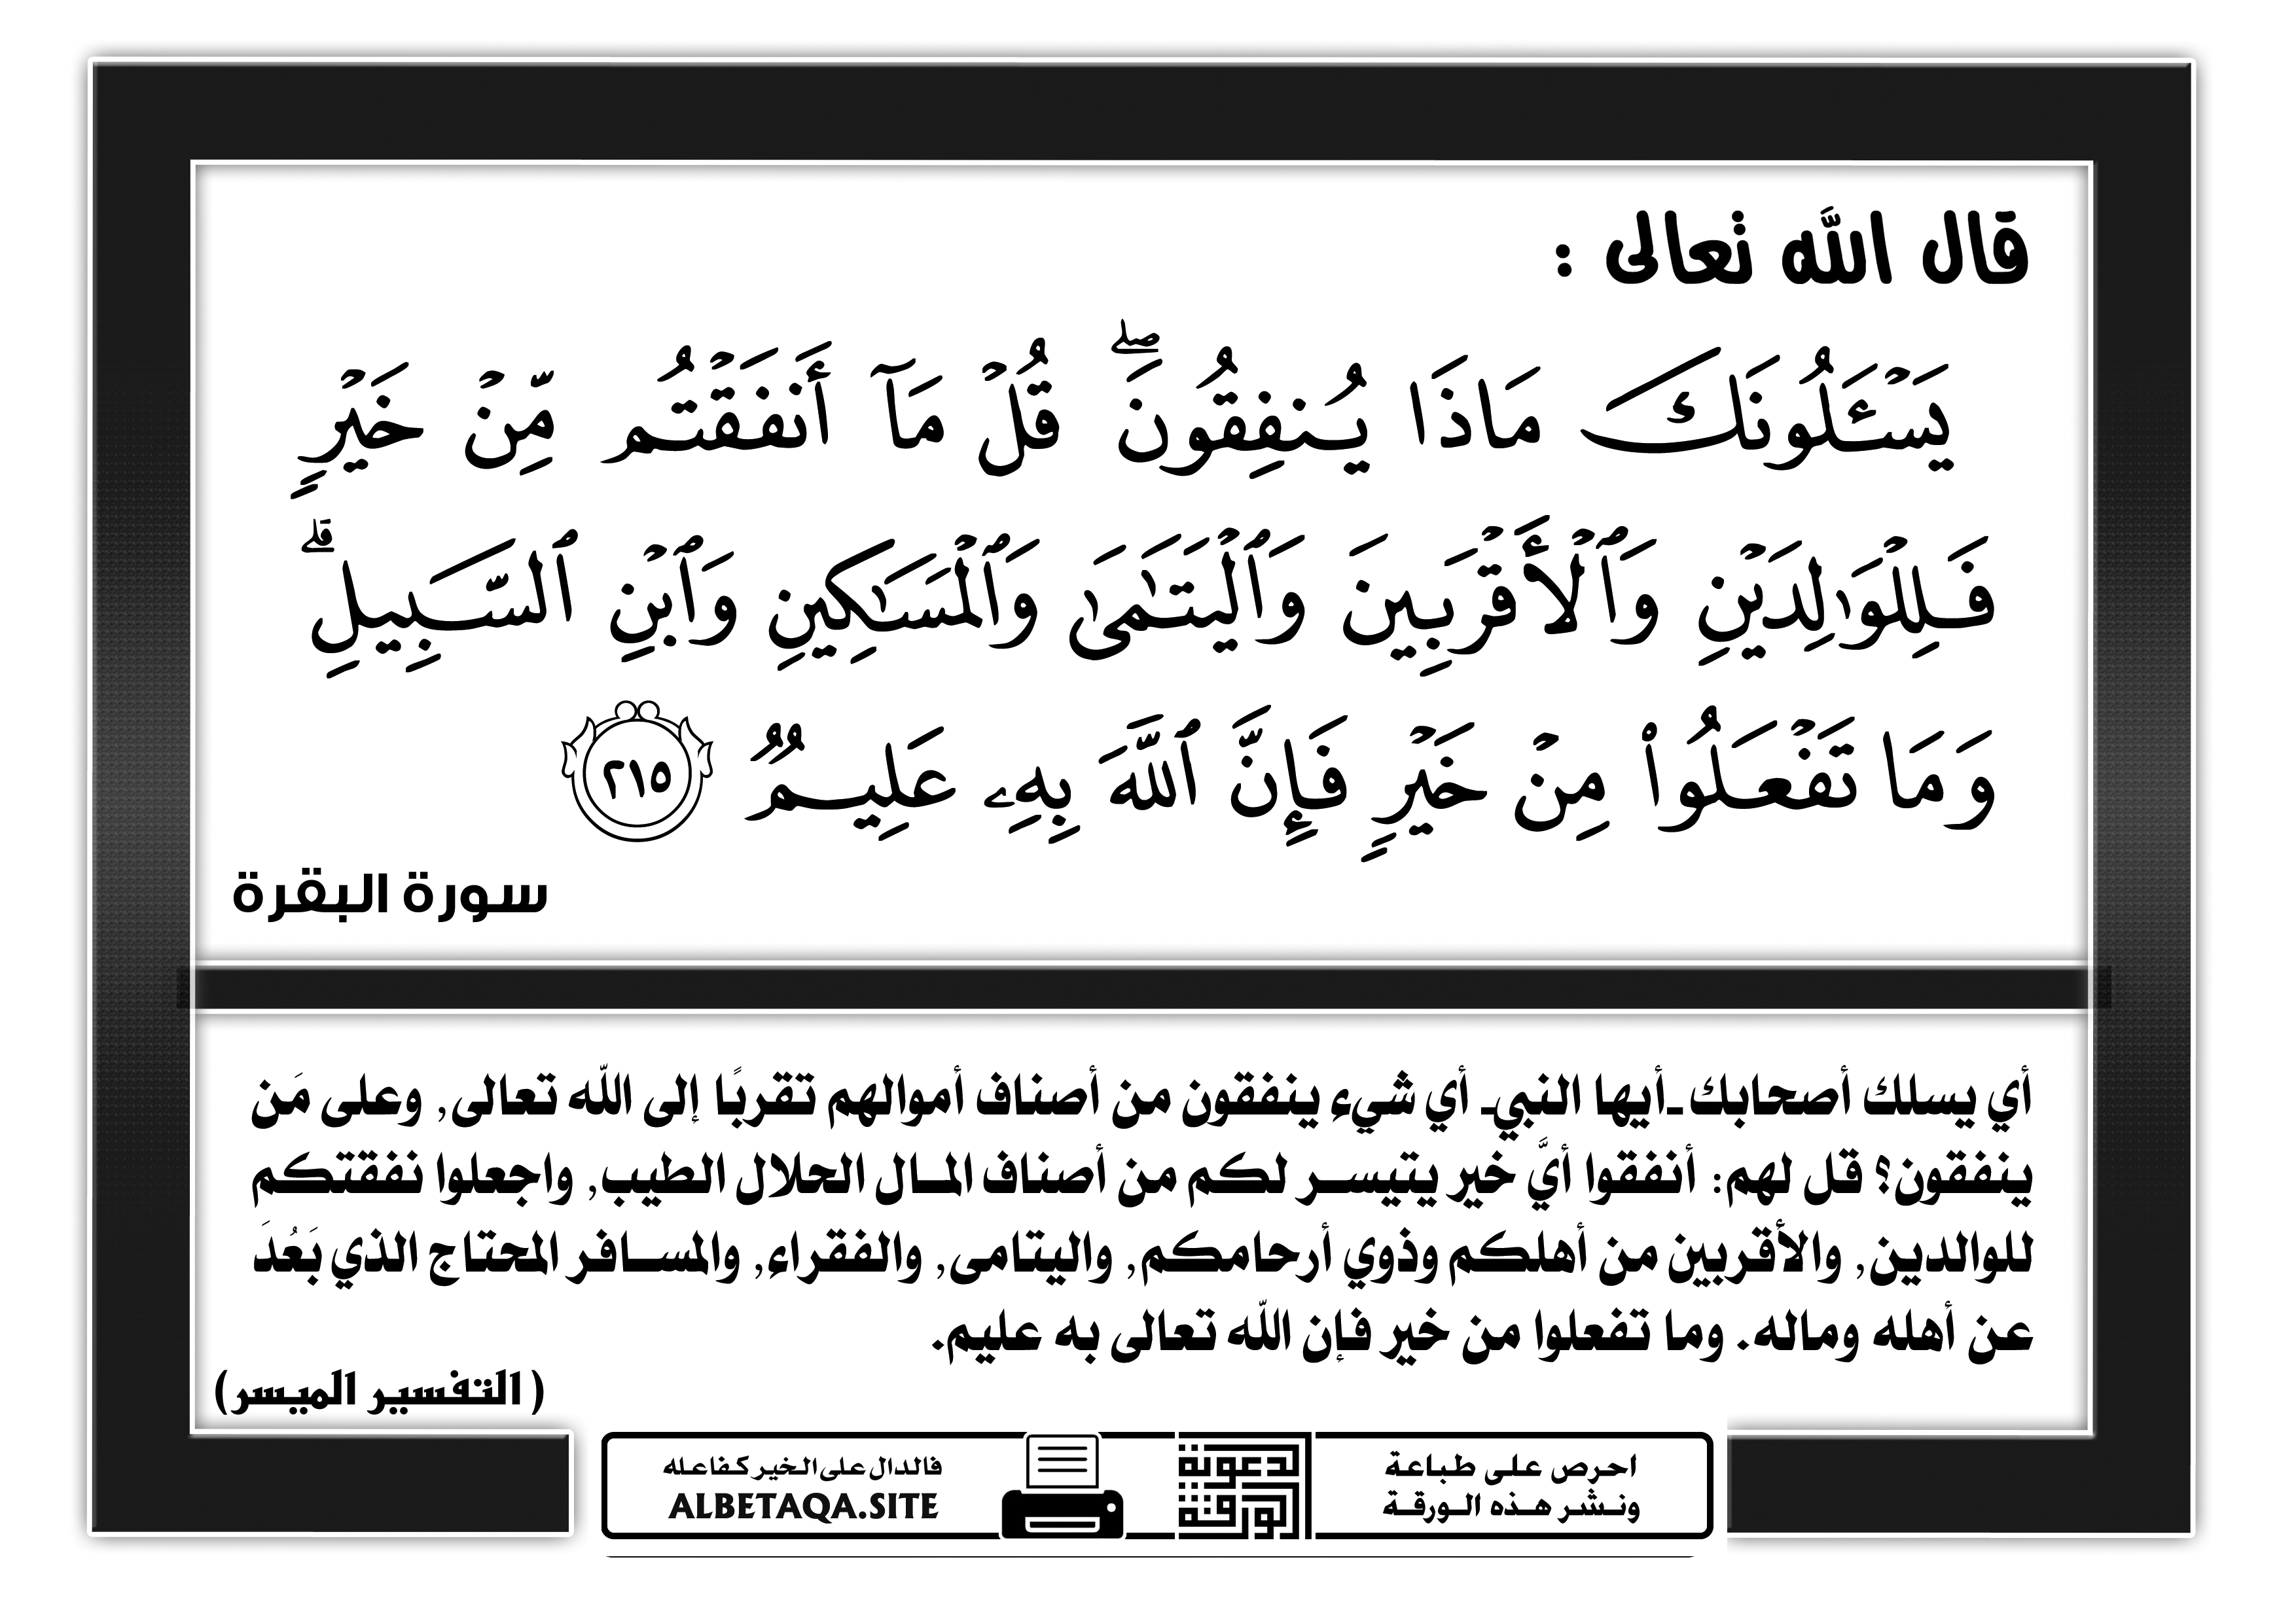 قال الله تعالى :
يَسْـَٔلُونَكَ مَاذَا يُنفِقُونَ ۖ قُلْ مَآ أَنفَقْتُم مِّنْ خَيْرٍ
فَلِلْوَٰلِدَيْنِ وَٱلْأَقْرَبِينَ وَٱلْيَتَـٰمَىٰ وَٱلْمَسَـٰكِينِ وَٱبْنِ ٱلسَّبِيلِ ۗ
وَمَا تَفْعَلُوا۟ مِنْ خَيْرٍ فَإِنَّ ٱللَّهَ بِهِۦ عَلِيمٌ ٢١٥
سورة البقرة
أي يسلك أصحابك ـأيها النبيـ أي شيء ينفقون من أصناف أموالهم تقربًا إلى الله تعالى, وعلى مَن
ينفقون؟ قل لهم: أنفقوا أيَّ خير يتيسر لكم من أصناف المال الحلال الطيب, واجعلوا نفقتكم
للوالدين, والأقربين من أهلكم وذوي أرحامكم, واليتامى, والفقراء, والمسافر المحتاج الذي بَعُدَ
عن أهله وماله. وما تفعلوا من خير فإن الله تعالى به عليم.
( التفسير الميسر)
احرص على طباعة
ونشر هذه الورقة
الدعوية
الورقة
فالدال على الخير كفاعله
ALBETAQA.SITE